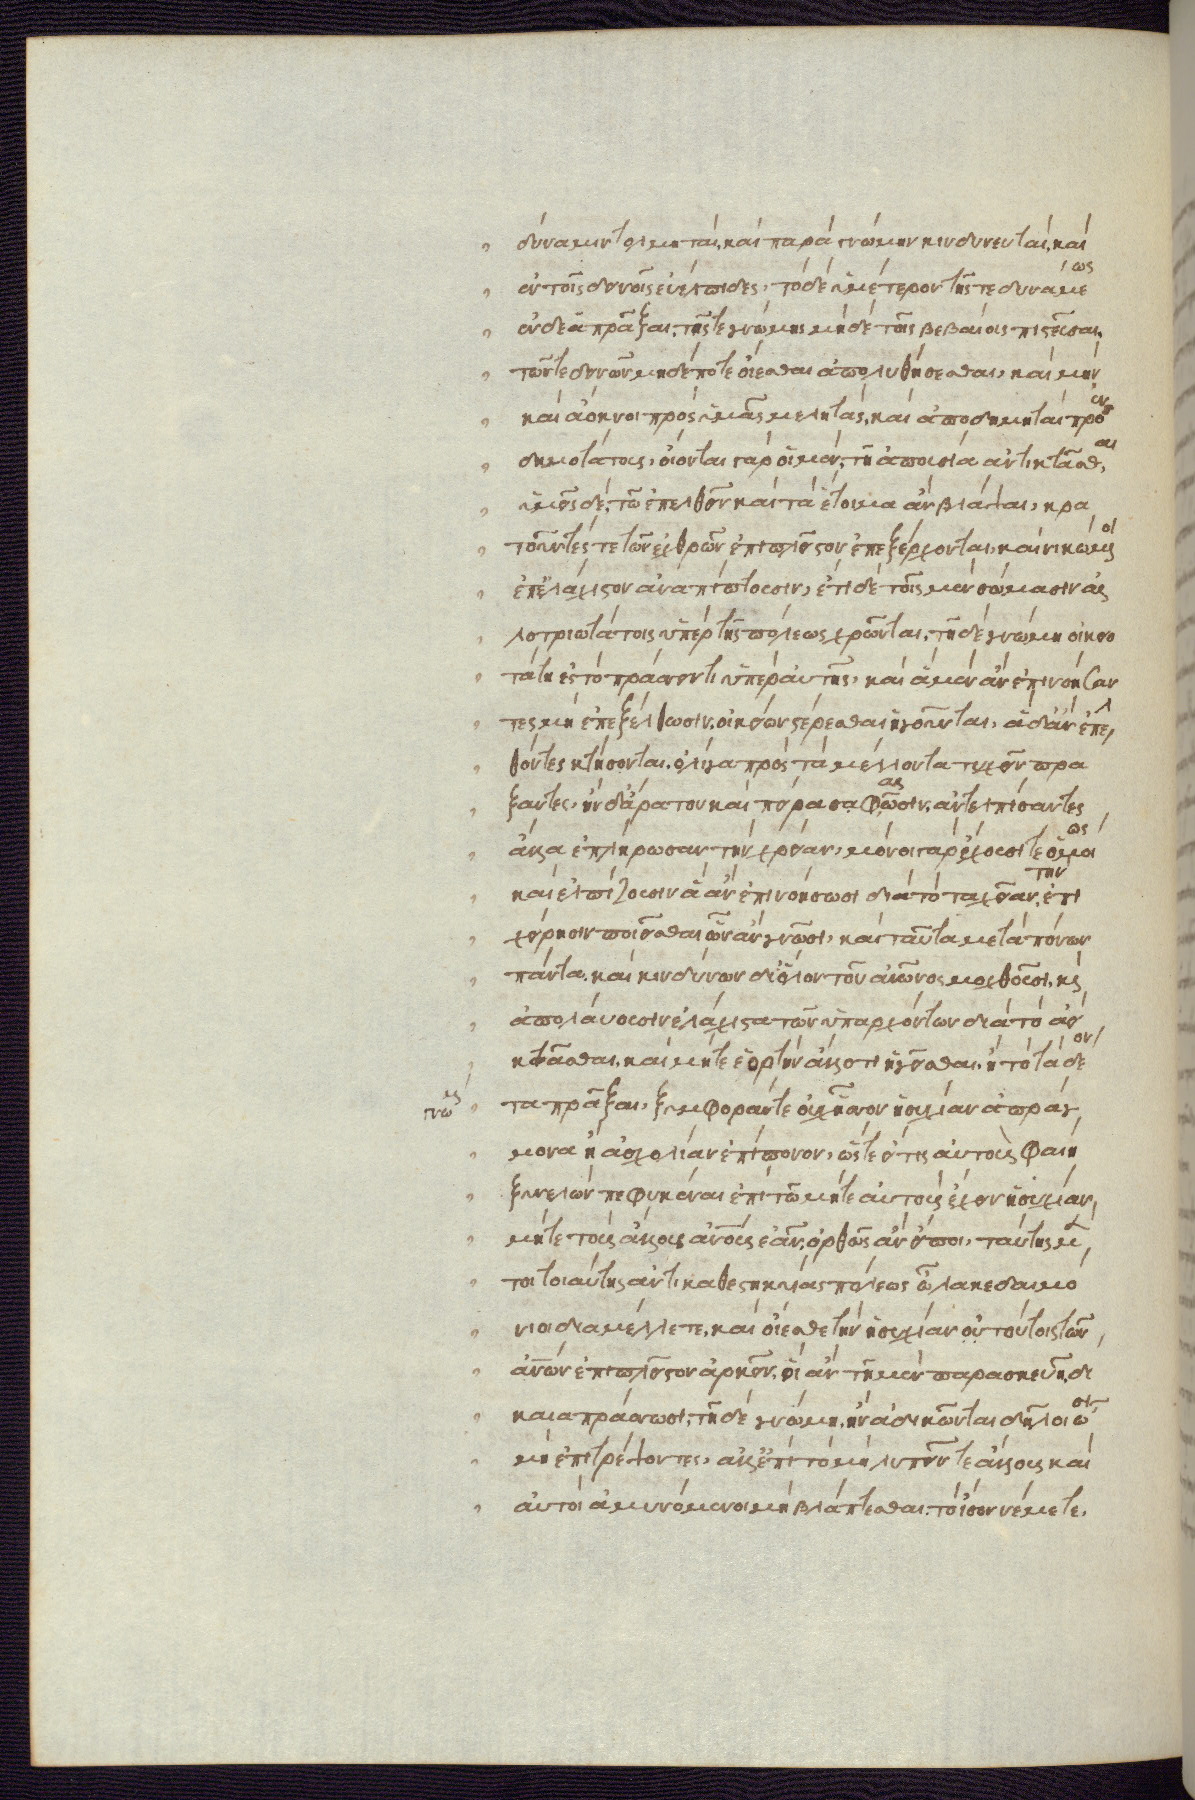 δύναμιν τολμηταί, καὶ παρὰ γνώμην κινδυνευταί, καὶ
ἐν τοῖς δεινοῖς εὐέλπιδες· τὸ δὲ ὑμέτερον τῆς τε δυνάμεως
ἐνδεᾶ πρᾶξαι, τῆς τε γνώμης μηδὲ τοῖς βεβαίοις πιστεῦσαι,
τῶν τε δεινῶν μηδέποτε οἴεσθαι ἀπολυθήσεσθαι, καὶ μὴν
καὶ ἄοκνοι πρὸς ὑμᾶς μελητάς, καὶ ἀποδημηταὶ πρὸς ἐν
δημοτάτους, οἴονται γὰρ οἱ μὲν, τῆ ἀπουσία ἄν τι κτᾶσθαι,
ὑμεῖς δὲ, τῶ ἐπελθεῖν καὶ τὰ ἕτοιμα ἂν βλάψαι, κρα
τοῦντές τε τῶν ἐχθρῶν ἐπὶ πλεῖστον ἐπεξέρχονται, καὶ νικώμενοι
ἐπ' ἐλάχιστον ἀναπίπτουσιν, ἔτι δὲ τοῖς μὲν σώμασιν ἀλ
λοτριωτάτοις ὑπὲρ τῆς πόλεως χρῶνται, τῆ δὲ γνώμη οἰκειο
τάτη ἐς τὸ πράσσειν τι ὑπὲρ αὐτῆς, καὶ ἃ μὲν ἂν ἐπινοήσαν
τες μὴ ἐπεξέλθωσιν, οἰκείων στέρεσθαι ἡγοῦνται, ἃ δ' ἂν ἐπελ
θόντες κτήσονται, ὀλίγα πρὸς τὰ μέλλοντα τυχεῖν πρά
ξαντες, ἢν δ' ἄρα του καὶ πείρα σφαλῶσιν, ἀντελπίσαντες
ἄλλα ἐπλήρωσαν τὴν χρείαν, μόνοι γὰρ ἔχουσί τε ὁμοίως
καὶ ἐλπίζουσιν ἃ ἂν ἐπινοήσωσι διὰ τὸ ταχεῖαν τὴν ἐπι
χείρησιν ποιεῖσθαι ὧν ἂν γνῶσι, καὶ ταῦτα μετὰ πόνων
πάντα, καὶ κινδύνων δι' ὅλου τοῦ αἰῶνος μοχθοῦσι, καὶ
ἀπολαύουσιν ἐλάχιστα τῶν ὑπαρχόντων διὰ τὸ ἀεὶ
κτᾶσθαι, καὶ μήτε ἑορτὴν ἄλλο τι ἡγεῖσθαι, ἢ τὸ τὰ δέον
τα πρᾶξαι, ξυμφοράν τε οὐχ ἧσσον ἡσυχίαν ἀπράγ
μονα ἢ ἀσχολίαν ἐπίπονον, ὥστε εἴ τις αὐτοὺς φαίη
ξυνελὼν πεφυκέναι ἐπὶ τῶ μήτε αὐτοὺς ἔχειν ἡσυχίαν,
μήτε τοὺς ἄλλους ἀνους ἐᾶν, ὀρθῶς ἂν εἴποι, ταύτης μέν
τοι τοιαύτης ἀντικαθεστηκυίας πόλεως ὦ λακεδαιμό
νιοι διαμέλλετε, καὶ οἴεσθε τὴν ἡσυχίαν οὐ τούτοις τῶν
ἀνων ἐπὶ πλεῖστον ἀρκεῖν, οἳ ἂν τῆ μὲν παρασκευῆ δί
καια πράσσωσι, τῆ δὲ γνώμη, ἢν ἀδικῶνται δῆλοι ὦσι
μὴ ἐπιτρέψοντες, ἀλλ' ἐπὶ τὸ μὴ λυπεῖν τε ἄλλους καὶ
αὐτοὶ ἀμυνόμενοι μὴ βλάπτεσθαι, τὸ ἴσον νέμετε.